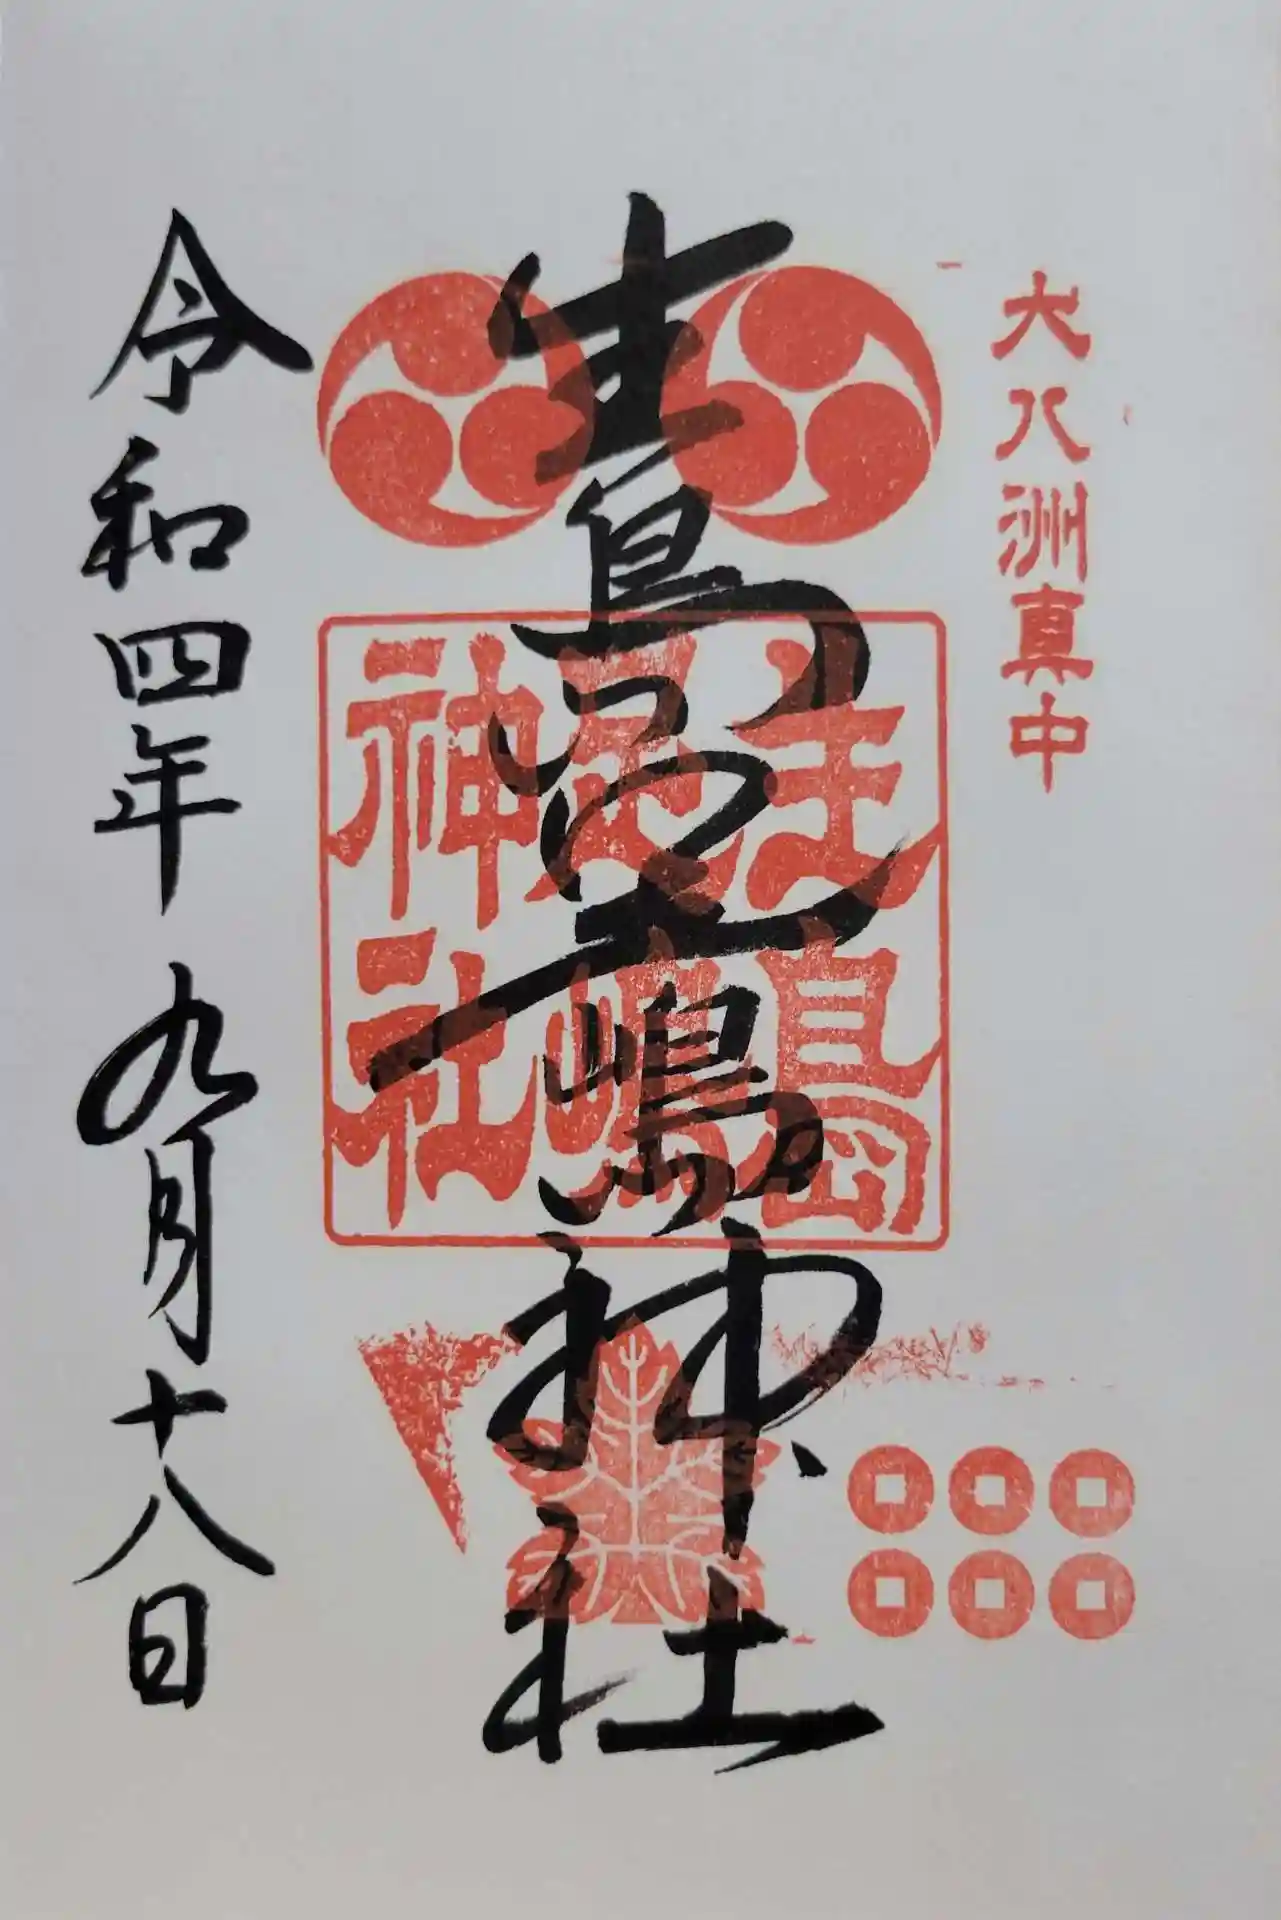 大八洲真中
生島足嶋神社
生島足嶋神社
令和四年九月十八日